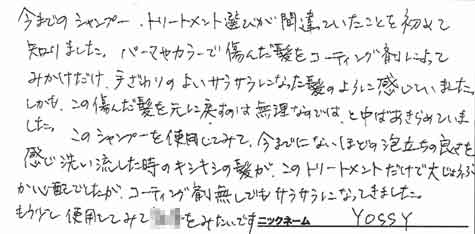 今までのシャンプー、トリートメント選びが間違っていたことを初めて
知りました。パーマやカラーで傷んだ髪をコーティング剤によって
みかけだけ、手ざわりのよいサラサラになった髪のように感じていました。
しかも、この傷んだ髪を元に戻すのは無理なのでは、と半ばあきらめていま
した。このシャンプーを使用してみて、今までにないほどの泡立ちの良さを
感じ洗い流した時のキシキシの髪が、このトリートメントだけで大じょうぶ
か心配でしたが、コーティング剤無しでもサラサラになってきました。
もう少し使用してみて をみたいです ニックネーム YOSSY